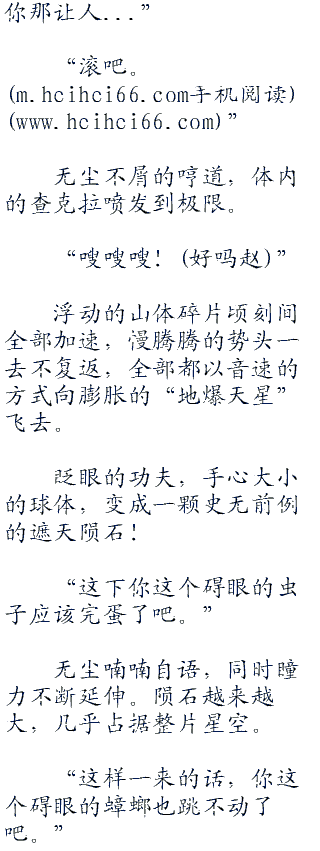 你那让人..."
“滚吧。
(m.hcihci66.com手机阅读)
(www.hcihci66.com)”
无尘不屑的哼道，体内
的查克拉喷发到极限。
“嗖嗖嗖！(好吗赵)”
浮动的山体碎片顷刻间
全部加速，慢腾腾的势头一
去不复返，全部都以音速的
方式向膨胀的“地爆天星”
飞去。
眨眼的功夫，手心大小
的球体，变成一颗史无前例
的遮天陨石！
“这下你这个碍眼的虫
子应该完蛋了吧。”
无尘喃喃自语，同时瞳
力不断延伸。陨石越来越
大，几乎占据整片星空。
“这样一来的话，你这
个碍眼的蟑螂也跳不动了
吧。”